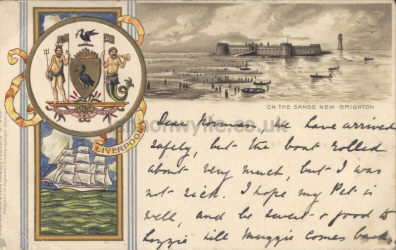 ON THE SANDS NEW BRIGHTON
LIVERPOOL
Dear Norman, we have arrived
safely, but the boat rolled
about very much, but I was
not sick. I hope my Pet is
well, and be sweet & good to
Lizzie till Muggie comes back